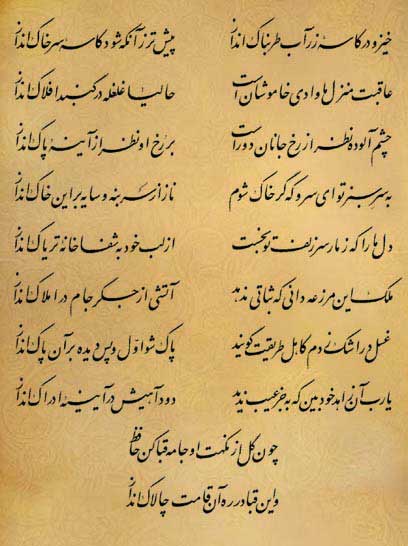 خیز و در کاسه زر آب طربناک انداز پیش تر زآنکه شود کاسه سر خاک انداز
عاقبت منزل ما وادی خاموشان است حالیا غلغله در گنبد افلاک انداز
چشم آلوده نظر از رخ جانان دور است بر رخ او نظر از آینهٔ پاک انداز
به سر سبز تو ای سرو که گر خاک شوم ناز از سر بنه و سایه بر این خاک انداز
دل ما را که ز مار سر زلف تو بخست از لب خود به شفاخانه تریاک انداز
ملک این مزرعه دانی که ثباتی ندهد آتشی از جگر جام در املاک انداز
غسل در اشک زدم کاهل طریقت گویند پاک شو اوّل و پس دیده بر آن پاک انداز
یا رب آن زاهد خودبین که به جز عیب ندید دود آهیش در آیینهٔ ادراک انداز
چون گل از نکهت او جامه قبا کن حافظ
واین قبا در ره آن قامت چالاک انداز